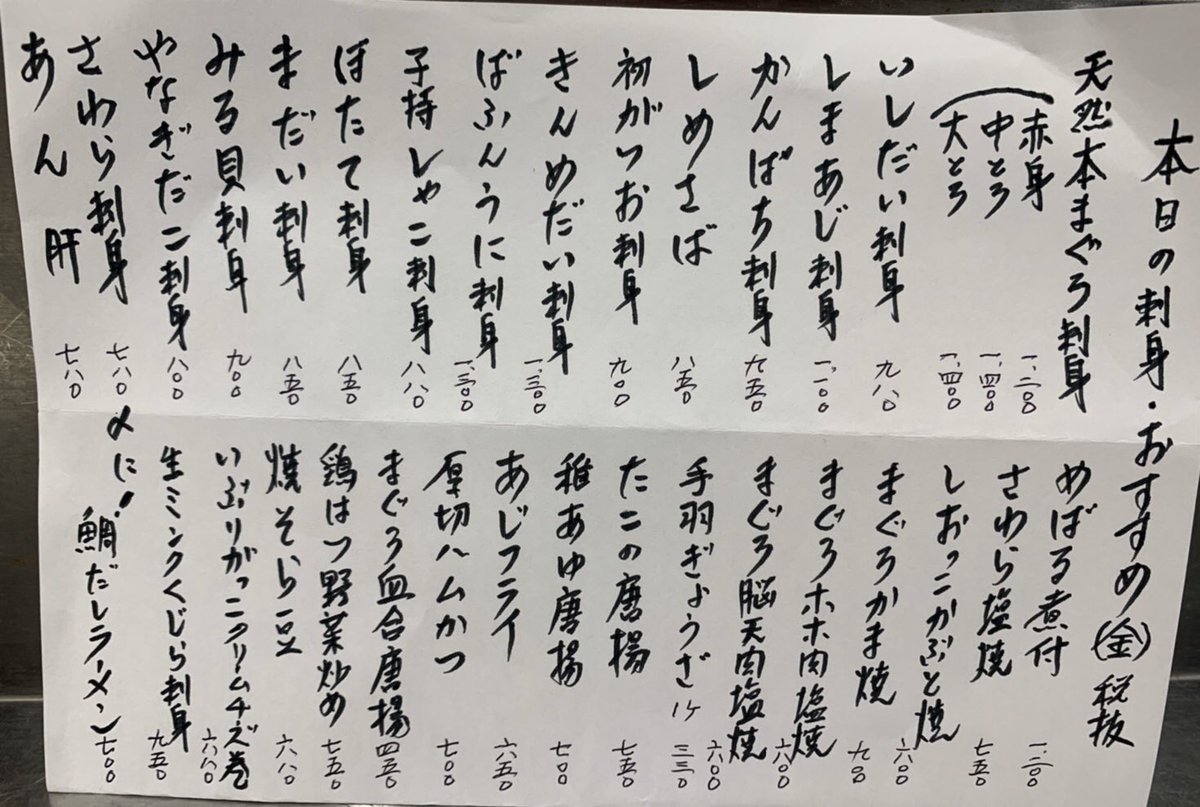 本日の刺身・おすすめ(金)税抜
天然本まぐろ刺身
赤身 一、二〇〇
中とろ 一、四〇〇
大とろ 一、四〇〇
いしだい刺身 九八〇
しまあじ刺身 一、一〇〇
かんぱち刺身 九五〇
しめさば 八五〇
初がつお刺身 九〇〇
きんめだい刺身 一、三〇〇
ばふんうに刺身 一、三〇〇
子持しゃこ刺身 八八〇
ほたて刺身 八五〇
まだい刺身 八五〇
みる貝刺身 九〇〇
やなぎだこ刺身 八〇〇
さわら刺身 七八〇
あん肝 七八〇
めばる煮付 一、二〇〇
さわら塩焼 七五〇
しおっこかぶと焼 六〇〇
まぐろかま焼 九〇〇
まぐろホホ肉塩焼 六〇〇
まぐろ脳天肉塩焼 六〇〇
手羽ぎょうざ 1ヶ 三三〇
たこの唐揚 七五〇
稚あゆ唐揚 七〇〇
あじフライ 六五〇
厚切ハムかつ 七〇〇
まぐろ血合唐揚 四五〇
鶏はつ野菜炒め 七五〇
焼そら豆 六八〇
いぶりがっこクリームチーズ巻 六八〇
生ミンククじら刺身 九五〇
〆に! 鯛だしラーメン 七〇〇